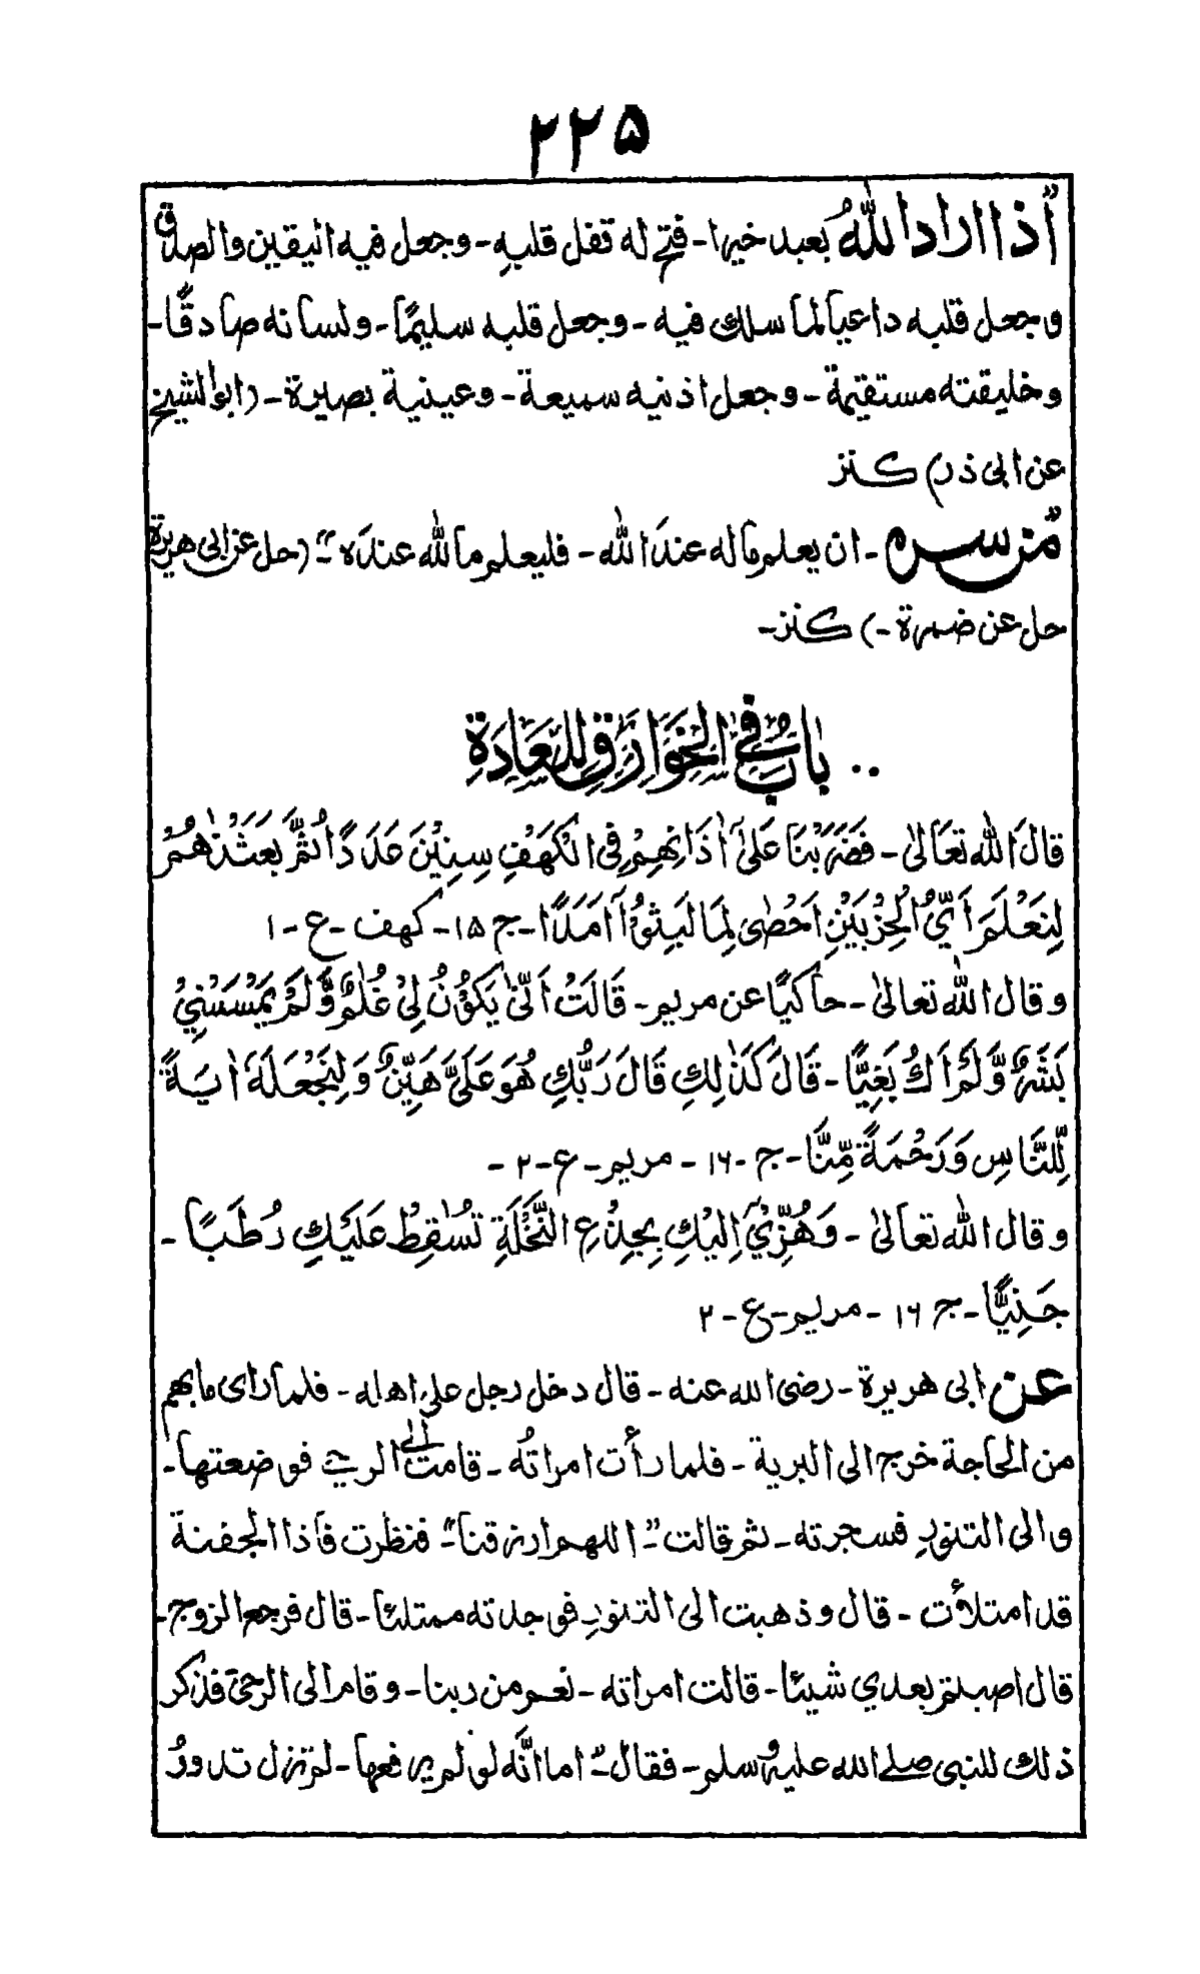 ۲۲۵
"اذا اراد اللهُ بعبد خيرا - فتح له قفل قلبهِ - وجعل فيه اليقين والصدق
وجعل قلبه داعياً لما سلك فيه - وجعل قلبه سليمًا - ولسانه صادقًا -
وخليقته مستقيمة - وجعل اذنيه سميعة - وعينية بصيرة - (ابوالشيخ
عن ابی ذر) کنز
"من سره - ان يعلم ماله عندَ الله - فليعلم ما لله عندَه -" (حل عن ابی هريرة
حل عن ضمرة -) کنز -
بابٌ فِی الْخَوَارِقِ لِلْعَادَةِ
قالَ الله تعَالىٰ - فَضَرَبْنَا عَلىٰٓ اٰذَانِهِمْ فِی الْكَهْفِ سِنِيْنَ عَدَدًا ثُمَّ بَعَثْنٰهُمْ
لِنَعْلَمَ اَیُّ الْحِزْبَيْنِ اَحْصٰى لِمَا لَبِثُوْآ اَمَدًا - ج ۱۵ - کهف - ع - ۱
وقال الله تعالىٰ - حاكيًا عن مريم - قَالَتْ اَنّٰى يَكُوْنُ لِیْ غُلٰمٌ وَّلَمْ يَمْسَسْنِیْ
بَشَرٌ وَّلَمْ اَكُ بَغِيًّا - قَالَ كَذٰلِكِ قَالَ رَبُّكِ هُوَ عَلَیَّ هَيِّنٌ وَلِنَجْعَلَهٗ اٰيَةً
لِّلنَّاسِ وَرَحْمَةً مِّنَّا - ج - ۱۶ - مريم - ع - ۲ -
وقال الله تعالىٰ - وَهُزِّیْٓ اِلَيْكِ بِجِذْعِ النَّخْلَةِ تُسٰقِطْ عَلَيْكِ رُطَبًا -
جَنِيًّا - ج ۱۶ - مريم - ع - ۲
عن ابی هريرة - رضی الله عنه - قال دخل رجل علیٰ اهله - فلما رای ما بهم
من الحاجة خرج الی البرية - فلما رأت امراتُه - قامت الی الرحی فوضعتها -
والی التنورِ فسجرته - ثم قالت - "اللهم ارزقنا -" فنظرت فاذا الجفنة
قد امتلأت - قال وذهبت الی التنورِ فوجدته ممتلئا - قال فرجع الزوج -
قال اصبتم بعدي شيئا - قالت امراته - نعم من ربنا - وقام الی الرحیٰ فذكر
ذلك للنبی صلے الله عليه وسلم - فقال - "اما انَّه لو لم يرفعها - لم تزل تدورُ